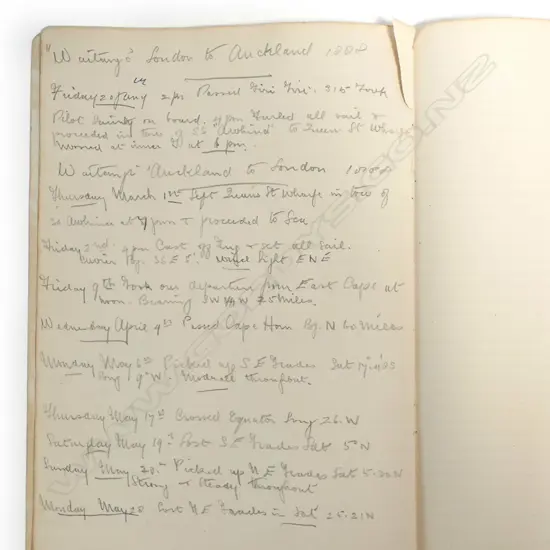 "Waitangi" London to Auckland 1888
Friday 20 Jany 2 pm Passed Tiri Tiri. 3.15 Took
Pilot on board. 4 pm Furled all sail &
proceeded in tow of SS "Archina" to Queen St Wharf
Moored at inner at 6 pm.
Waitangi Auckland to London 1888
Thursday March 1st Left Queen St Wharf in tow of
at 7 pm & proceeded to Sea
Friday 2nd. 4 pm Cast off Tug & set all sail.
Cuvier Bg. S 6 E 5'. Wind light ENE
Friday 9th Took our departure from East Cape at
noon. Bearing SW 25 miles.
Wednesday April 4th Passed Cape Horn Bg. N 60 Miles
May 6th Picked up S E Trades Lat
Long 19° W. Moderate throughout.
Thursday May 17th Crossed Equator Long 26. W
Saturday May 19th Lost S E Trades Lat 5° N
Sunday May 20th Picked up N E Trades Lat N
Strong & Steady throughout
Monday May 28 Lost N E Trades in Lat 25.21 N